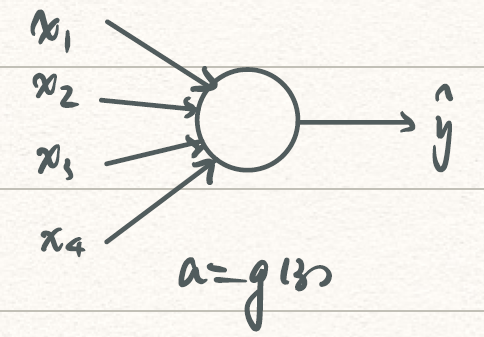 x₁
x₂
x₃
x₄
ŷ
a = g(z)